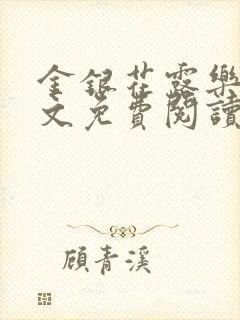 金銀花露樂
文免費閱讀
顧青溪